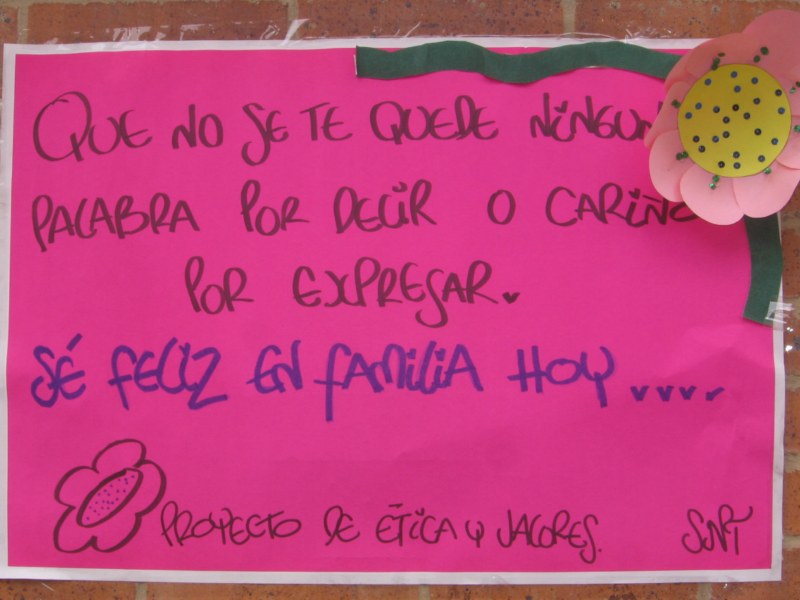 QUE NO SE TE QUEDE NINGUN
PALABRA POR DECIR O CARIÑO
POR EXPRESAR.
SÉ FELIZ EN FAMILIA HOY ....
PROYECTO DE ÉTICA Y VALORES.